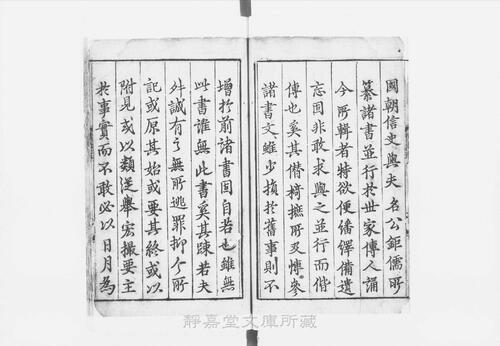 國朝信史與夫 名公鉅儒所
纂諸書並行於世家傳人誦
今所輯者特欲便繙繹備遺
忘固非敢求與之並行而偕
傳也奚其僭掎摭所及博參
諸書文雖少損於舊事則不
增於前諸書固自若也雖無
此書誰無此書奚其踈若夫
舛誠有之無所逃罪抑今所
記或原其始或要其終或以
附見或以類從舉宏撮要主
於事實而不敢必以日月為
靜嘉堂文庫所藏